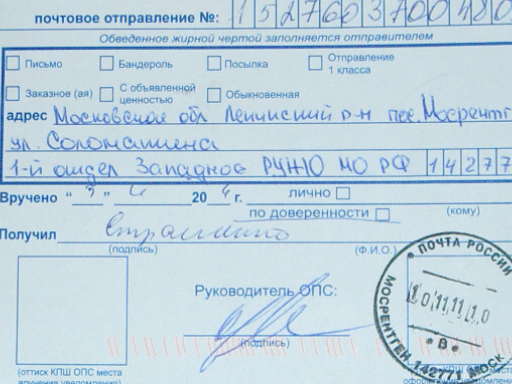 почтовое отправление №: 1527603700480
Обведенное жирной чертой заполняется отправителем
Письмо Бандероль Посылка Отправление 1 класса
Заказное (ая) С объявленной ценностью Обыкновенная
адрес Московская обл Ленинский р-н пос. Мосрентг
ул. Соломатина
1-й отдел Западное РУЖО МО РФ 14277
Вручено " " 20 г. лично
по доверенности (кому)
Получил
(подпись) (Ф.И.О.)
ПОЧТА РОССИИ
Руководитель ОПС:
10 11 11 10
МОСРЕНТГЕН 142771 МОСК
* В *
(подпись)
(оттиск КПШ ОПС места
вручения уведомления)